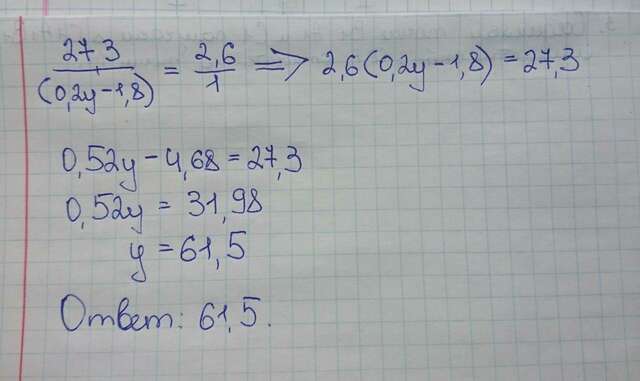 27,3/(0,2y-1,8) = 2,6/1 => 2,6(0,2y-1,8) = 27,3
0,52y - 4,68 = 27,3
0,52y = 31,98
y = 61,5
Ответ: 61,5.